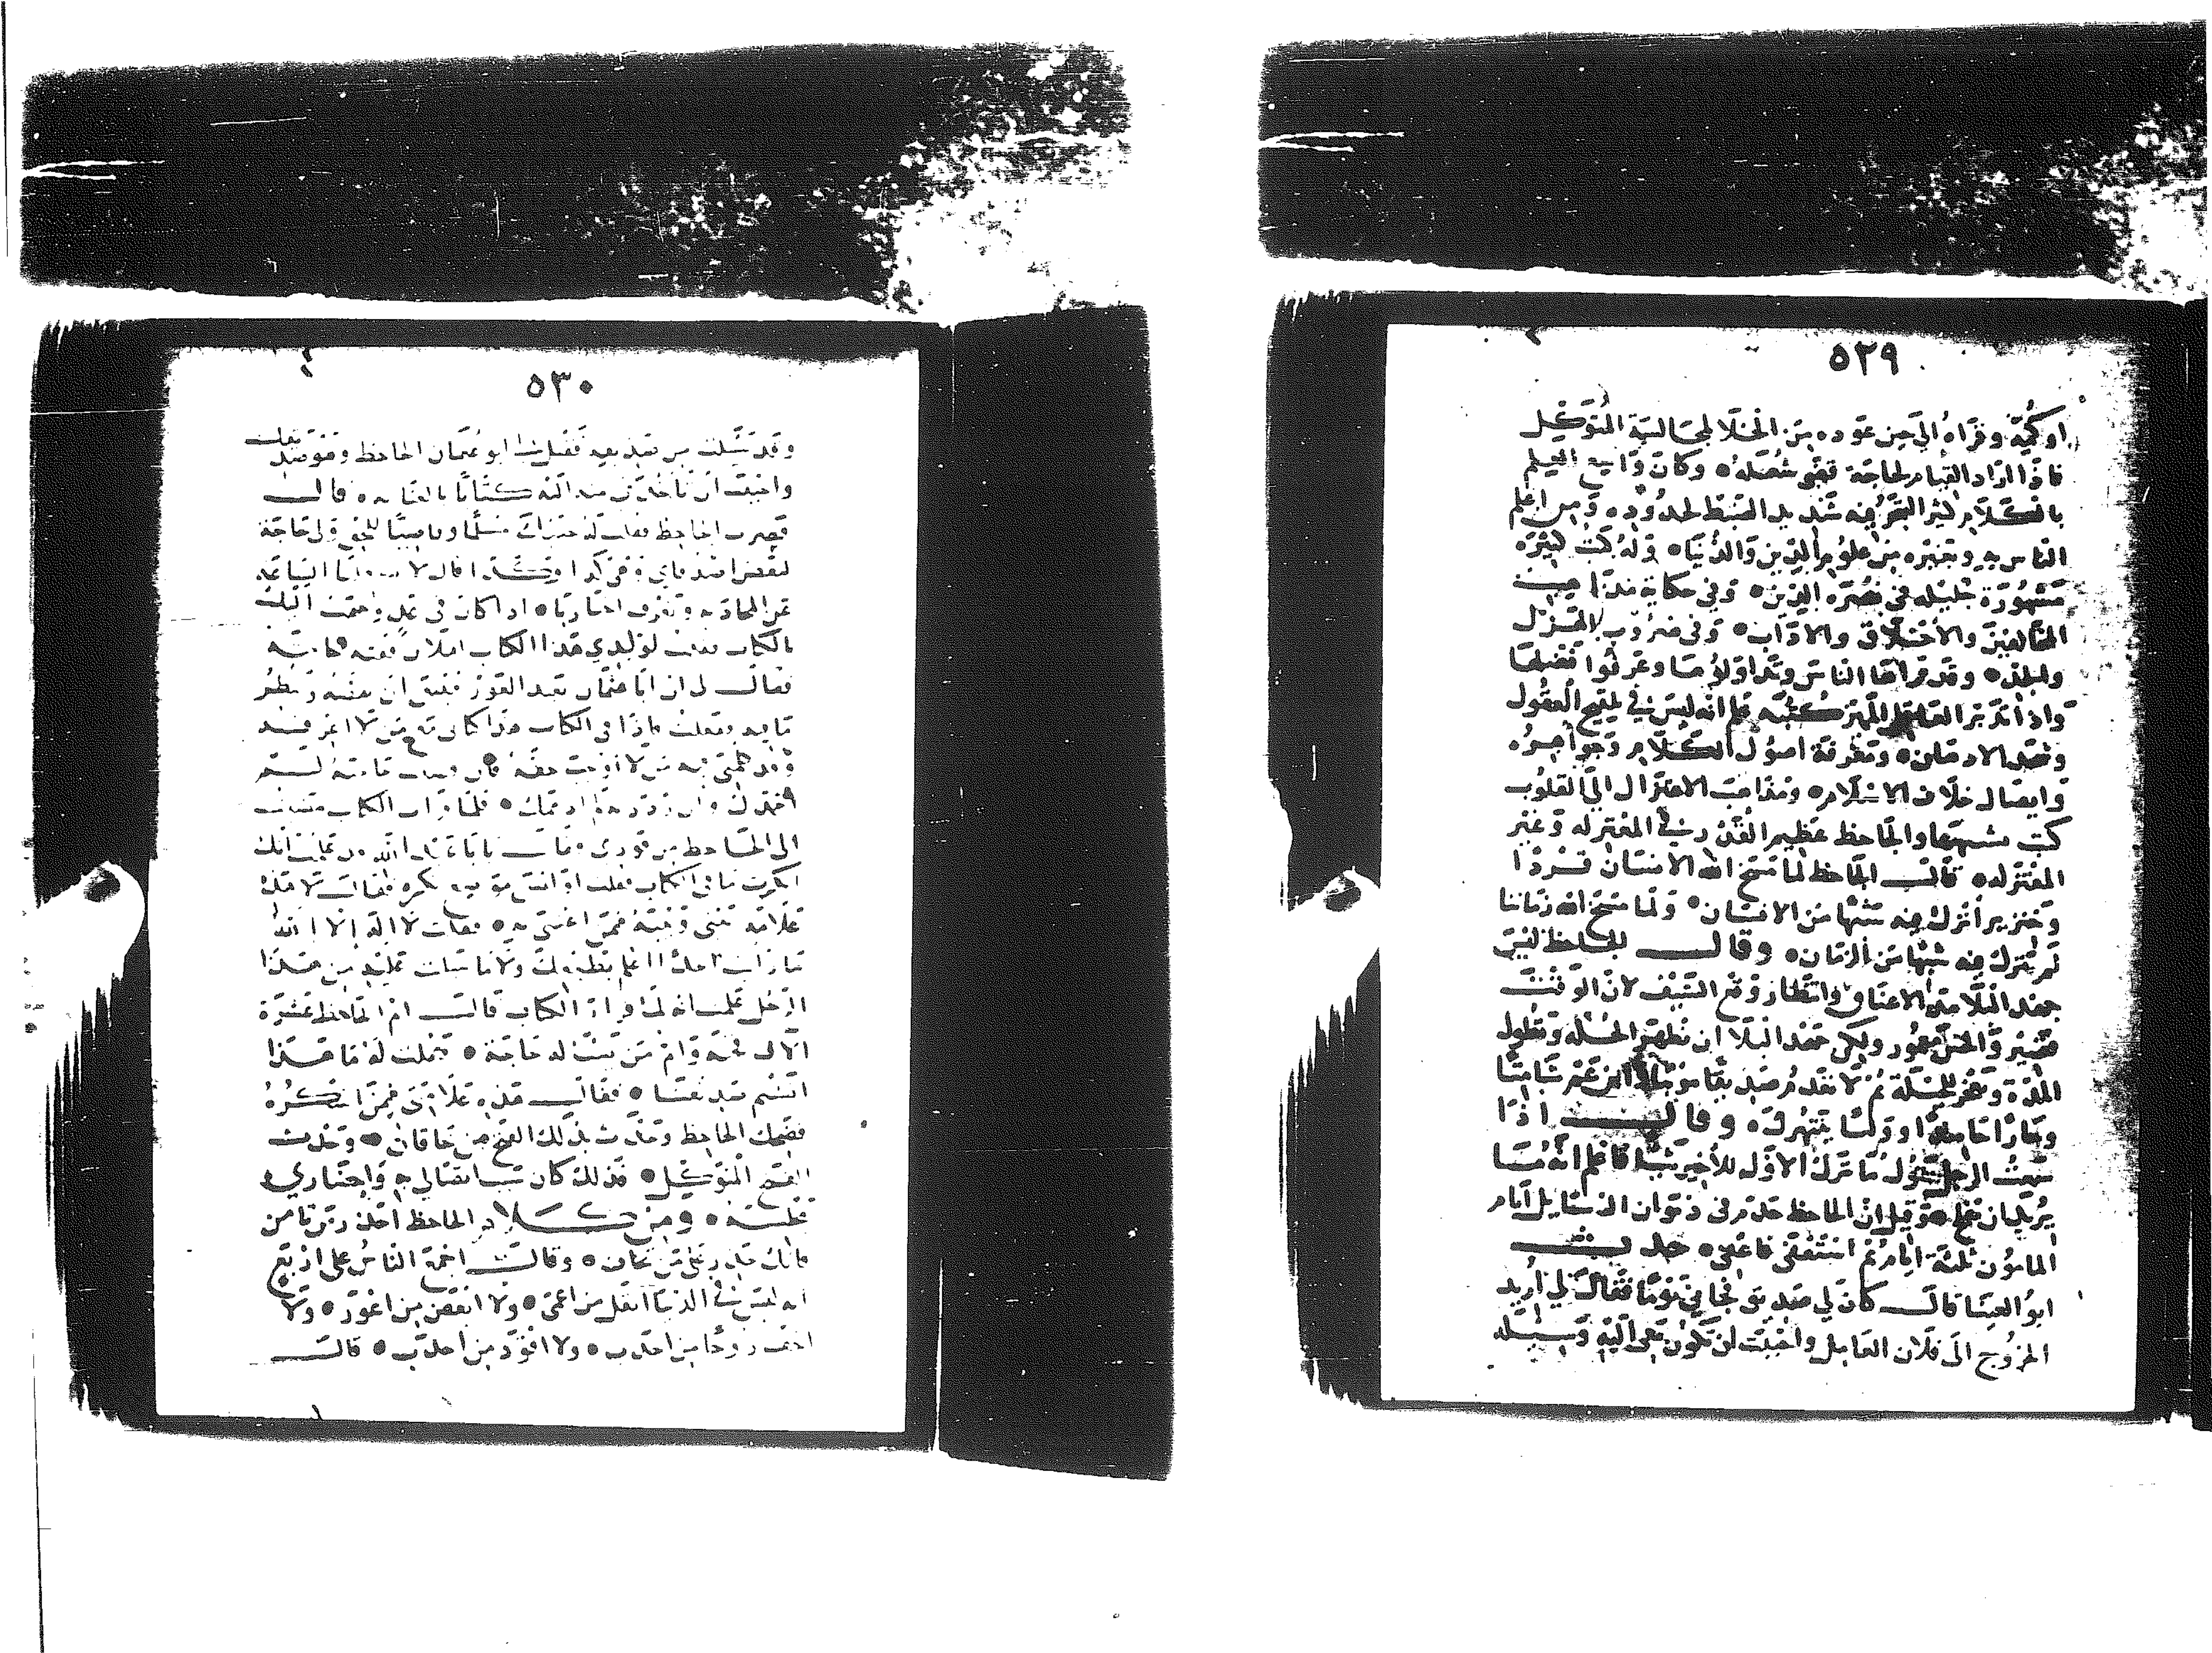 ٥٢٩
او كمه وقراه الي حين عوده من الخلا لمجالسة المتوكل
فاذا اراد القيام لحاجة قضى شغله وكان واسع العلم
بالكلام كثير التبحر فيه شديد الضبط لحدوده ومن اعلم
الناس به وبغيره من علوم الدين والدنيا وله كتب كثيره
مشهورة جليله في نصره الدين وفي حكاية مذاهب
المخالفين والاخلاق والاداب وفي ضروب الهزل
وقد قراها الناس وتداولوها وعرفوا فضلها
واذا تدبر العاقل المميز كتبه علم انه ليس في تلقيح العقول
وشحذ الاذهان ومعرفة اصول الكلام وجواهره
وايصال خلاف الاسلام ومذاهب الاعتزال الى القلوب
كتب تشبهها والجاحظ عظيم القدر في المعتزله وغير
المعتزله قال الجاحظ لما مسخ الله الانسان قردا
وخنزيرا ترك فيه شبها من الانسان ولما مسخ الله زماننا
لم يترك فيه شبها من الزمان وقال الجاحظ ليس
جهد البلا مد الاعناق وانتظار وقع السيف لان الوقت
قصير والحس مغمور ولكن جهد البلا ان تظهر الخله وتطول
المدة وتعجز الحيلة ثم لا تعدم صديقا مونبا وابن عم شامتا
وجارا حاسدا ووليا وقال اذا
سمعت الرجل يقول ما ترك الاول للأخير شيئا فاعلم انه ما
يريد ان يفلح وقيل ان الجاحظ خدم في ديوان الرسايل ايام
المامون ثلثة ايام ثم استعفى فاعفى حدث
ابو العينا قال كان لي صديق فجاءني يوما فقال لي اريد
الخروج الى فلان العامل واحببت ان تكون معي اليه وسيله
٥٣٠
وقد سئلت من صديقه فقيل لي ابو عثمان الجاحظ وهو صديقك
واحب ان تاخذ لي منه اليه كتابا بالعنايه قال
فصرت الى الجاحظ فقلت له جيتك مسلما وقاضيا للحق ولي حاجة
لبعض اصدقاي وهي كذا وكذا قال لا الساعة
عن المحادثه وتعرف اخبارنا اذا كان في غد وجهت اليك
بالكتاب فقلت لولدي هذا الكتاب الى فلان ففيه حاجته
فقال لي ان ابا عثمان بعيد الغور فينبغي ان نفضه وننظر
ما فيه ففعلت فاذا في الكتاب هذا كتابي مع من لا اعرفه
وقد كلمني فيه من لا اوجب حقه فان قضيت حاجته لم
احمدك وان رددته لم اذمك فلما قرات الكتاب مضيت
الى الجاحظ من فوري فقال يا ابا عبد الله قد علمت انك
انكرت ما في الكتاب فقلت او ليس موضع نكره فقال لا هذه
علامه بيني وبينه فيمن اعتني به فقلت لا اله الا الله
ما رايت احدا اعلم بطبعك ولا ما جبلت عليه من هذا
الرجل علمت انه لما قرا الكتاب قال ام الجاحظ عشرة
الاف قحبه وام من يسل له حاجة فقلت له ما هذا
اتشتم صديقنا فقال هذه علامتي فيمن اشكره
فضحك الجاحظ وحدث بذلك الفتح بن خاقان وحدث
الفتح المتوكل فذلك كان سبب اتصالي به واحضاري
مجلسه ومن كلام الجاحظ احذر من تامن
فانك حذر ممن تخاف وقال اجمع الناس على اربع
انه ليس في الدنيا اثقل من اعمى ولا ابغض من اعور ولا
اخف روحا من احدب ولا اقود من احدب قال